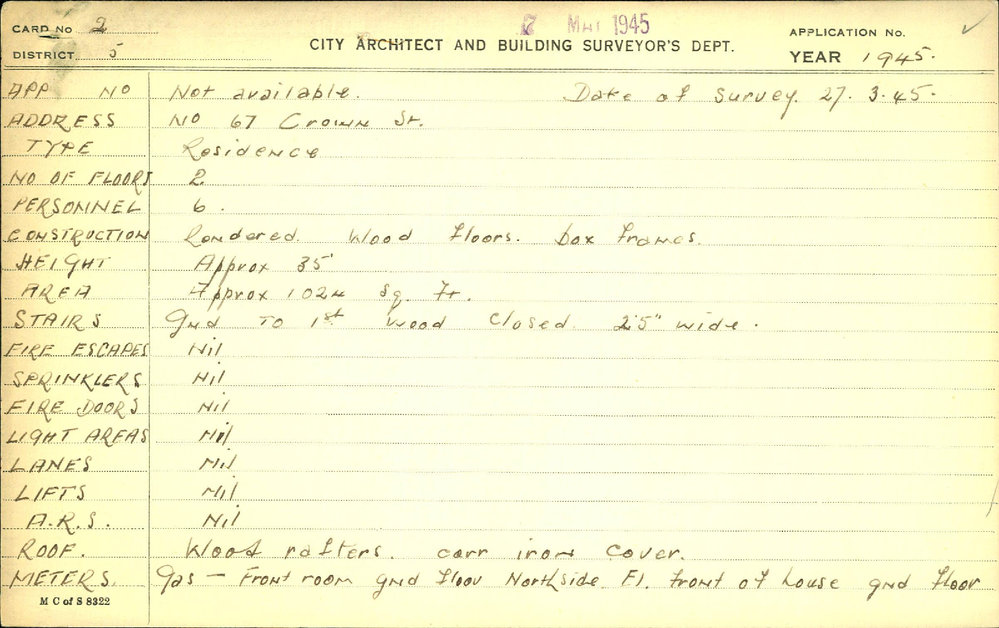 CARD No 2
DISTRICT 5
7 MAY 1945
CITY ARCHITECT AND BUILDING SURVEYOR'S DEPT.
APPLICATION No.
YEAR 1945.
APP No Not available. Date of survey. 27.3.45.
ADDRESS No 67 Crown St.
TYPE Residence
NO OF FLOORS 2
PERSONNEL 6.
CONSTRUCTION Rendered. Wood floors. box frames.
HEIGHT Approx 35'
AREA Approx 1024 Sq. Ft.
STAIRS Gnd To 1st Wood Closed. 2'5" wide.
FIRE ESCAPES Nil
SPRINKLERS Nil
FIRE DOORS Nil
LIGHT AREAS Nil
LANES Nil
LIFTS Nil
A.R.S. Nil
ROOF. Wood rafters. corr iron cover.
METERS. Gas — Front room gnd floor Northside. El. front of house gnd floor
M C of S 8322